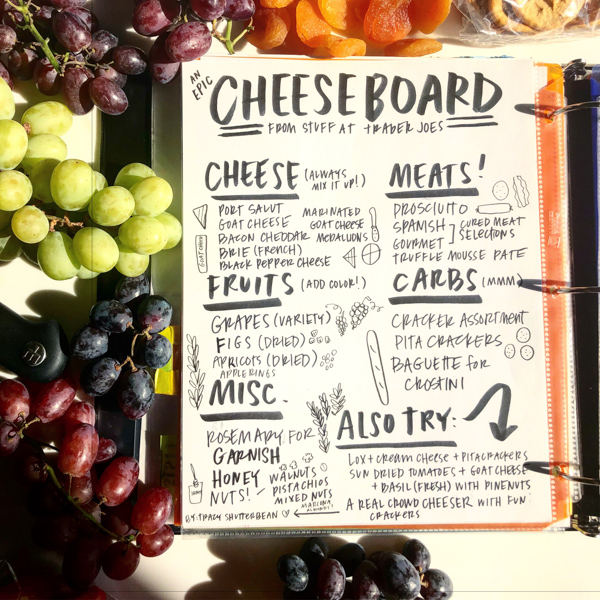 AN EPIC
CHEESEBOARD
FROM STUFF AT TRADER JOES
CHEESE (ALWAYS MIX IT UP!)
PORT SALUT
GOAT CHEESE
BACON CHEDDAR
BRIE (FRENCH)
BLACK PEPPER CHEESE
MARINATED
GOAT CHEESE
MEDALLIONS
GOAT CHEESE
MEATS!
PROSCIUTTO
SPANISH
GOURMET
] CURED MEAT
SELECTIONS
TRUFFLE MOUSSE PATE
FRUITS (ADD COLOR!)
GRAPES (VARIETY)
FIGS (DRIED)
APRICOTS (DRIED)
APPLE RINGS
CARBS (MMM)
CRACKER ASSORTMENT
PITA CRACKERS
BAGUETTE FOR
CROSTINI
MISC.
ROSEMARY FOR
GARNISH
HONEY
NUTS!
WALNUTS
PISTACHIOS
MIXED NUTS
MARCONA
ALMONDS!
ALSO TRY:
LOX + CREAM CHEESE + PITA CRACKERS
SUN DRIED TOMATOES + GOAT CHEESE
+ BASIL (FRESH) WITH PINENUTS
A REAL CROWD CHEESER WITH FUN
CRACKERS
BY: TRACY SHUTTERBEAN